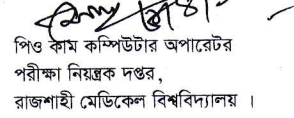 পিও কাম কম্পিউটার অপারেটর
পরীক্ষা নিয়ন্ত্রক দপ্তর,
রাজশাহী মেডিকেল বিশ্ববিদ্যালয় ।